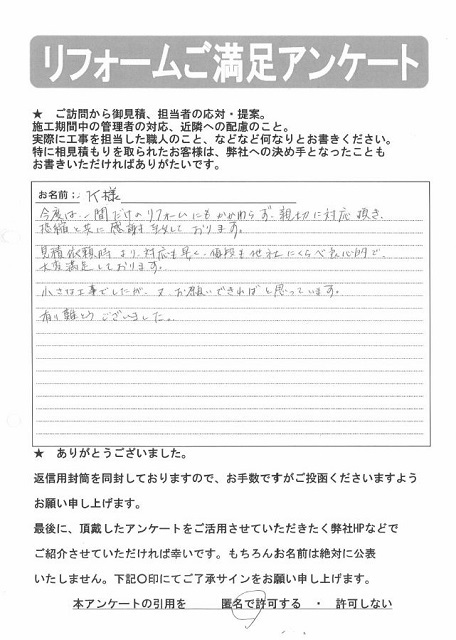 リフォームご満足アンケート
★ ご訪問から御見積、担当者の応対・提案。
施工期間中の管理者の対応、近隣への配慮のこと。
実際に工事を担当した職人のこと、などなど何なりとお書きください。
特に相見積もりを取られたお客様は、弊社への決め手となったことも
お書きいただければありがたいです。
お名前: K様
今度は、一間だけのリフォームにもかかわらず、親切に対応頂き、
恐縮と共に感謝を致しております。
見積依頼時より、対応も早く、値段も他社にくらべ良心的で、
大変満足しております。
小さな工事でしたが、又、お願いできればと思っています。
有り難とうございました。
★ ありがとうございました。
返信用封筒を同封しておりますので、お手数ですがご投函くださいますよう
お願い申し上げます。
最後に、頂戴したアンケートをご活用させていただきたく弊社HPなどで
ご紹介させていただければ幸いです。もちろんお名前は絶対に公表
いたしません。下記〇印にてご了承サインをお願い申し上げます。
本アンケートの引用を 匿名で許可する ・ 許可しない